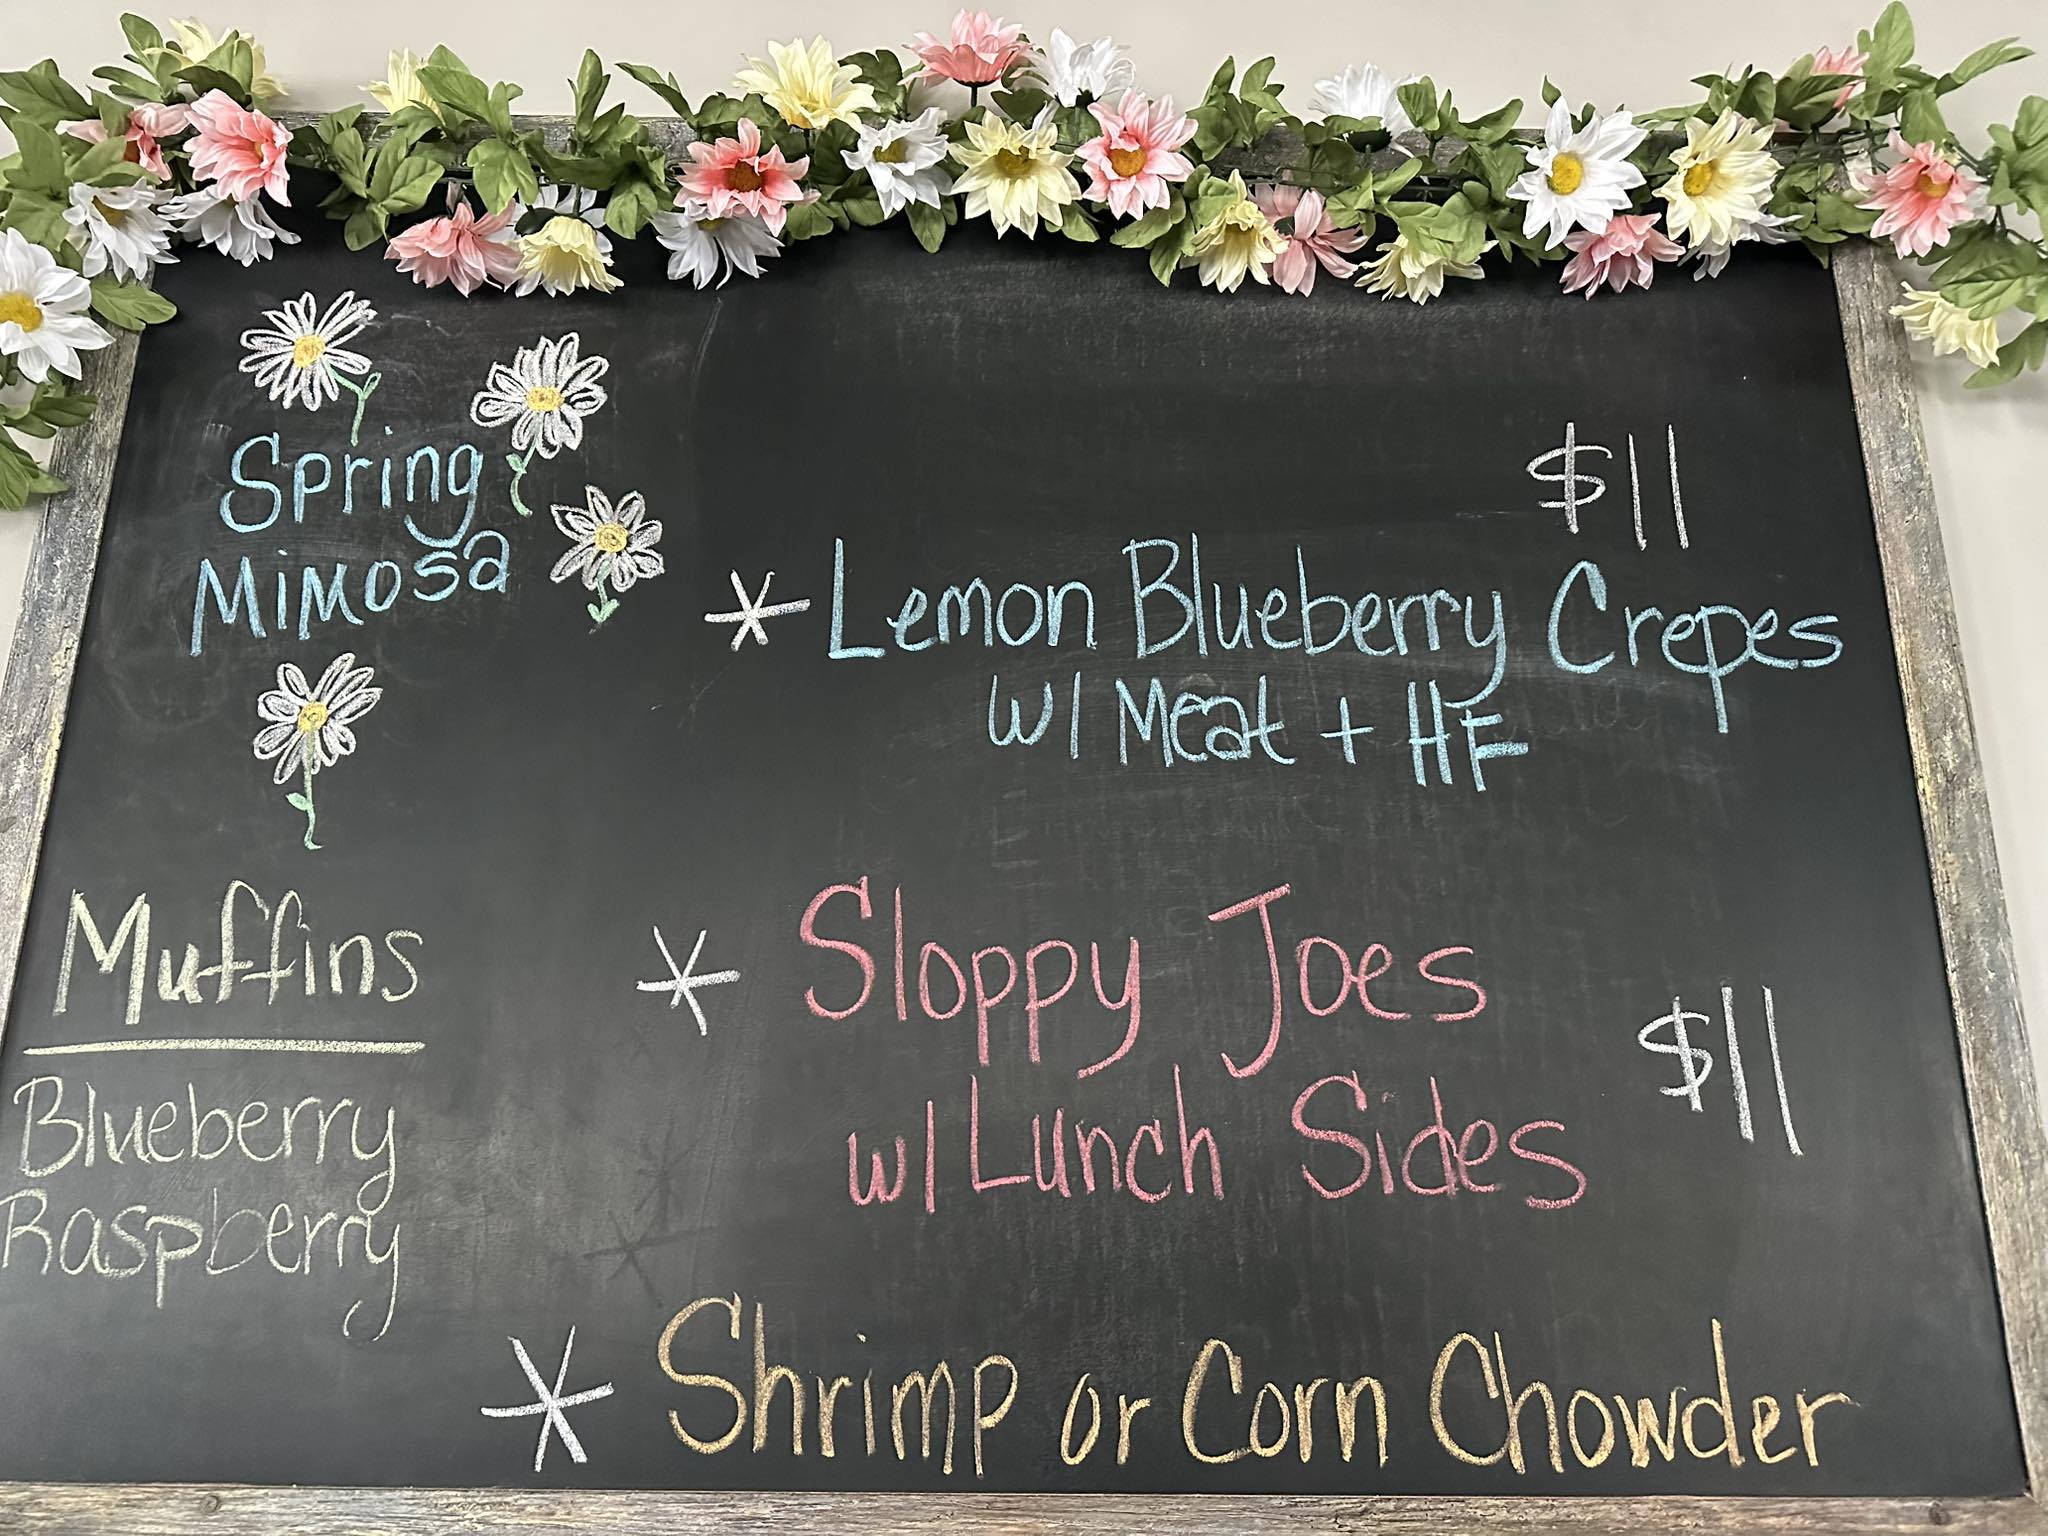 Spring
Mimosa
Muffins
Blueberry
Raspberry
$11
* Lemon Blueberry Crepes
w/ Meat + HF
* Sloppy Joes
$11
w/ Lunch Sides
* Shrimp or Corn Chowder